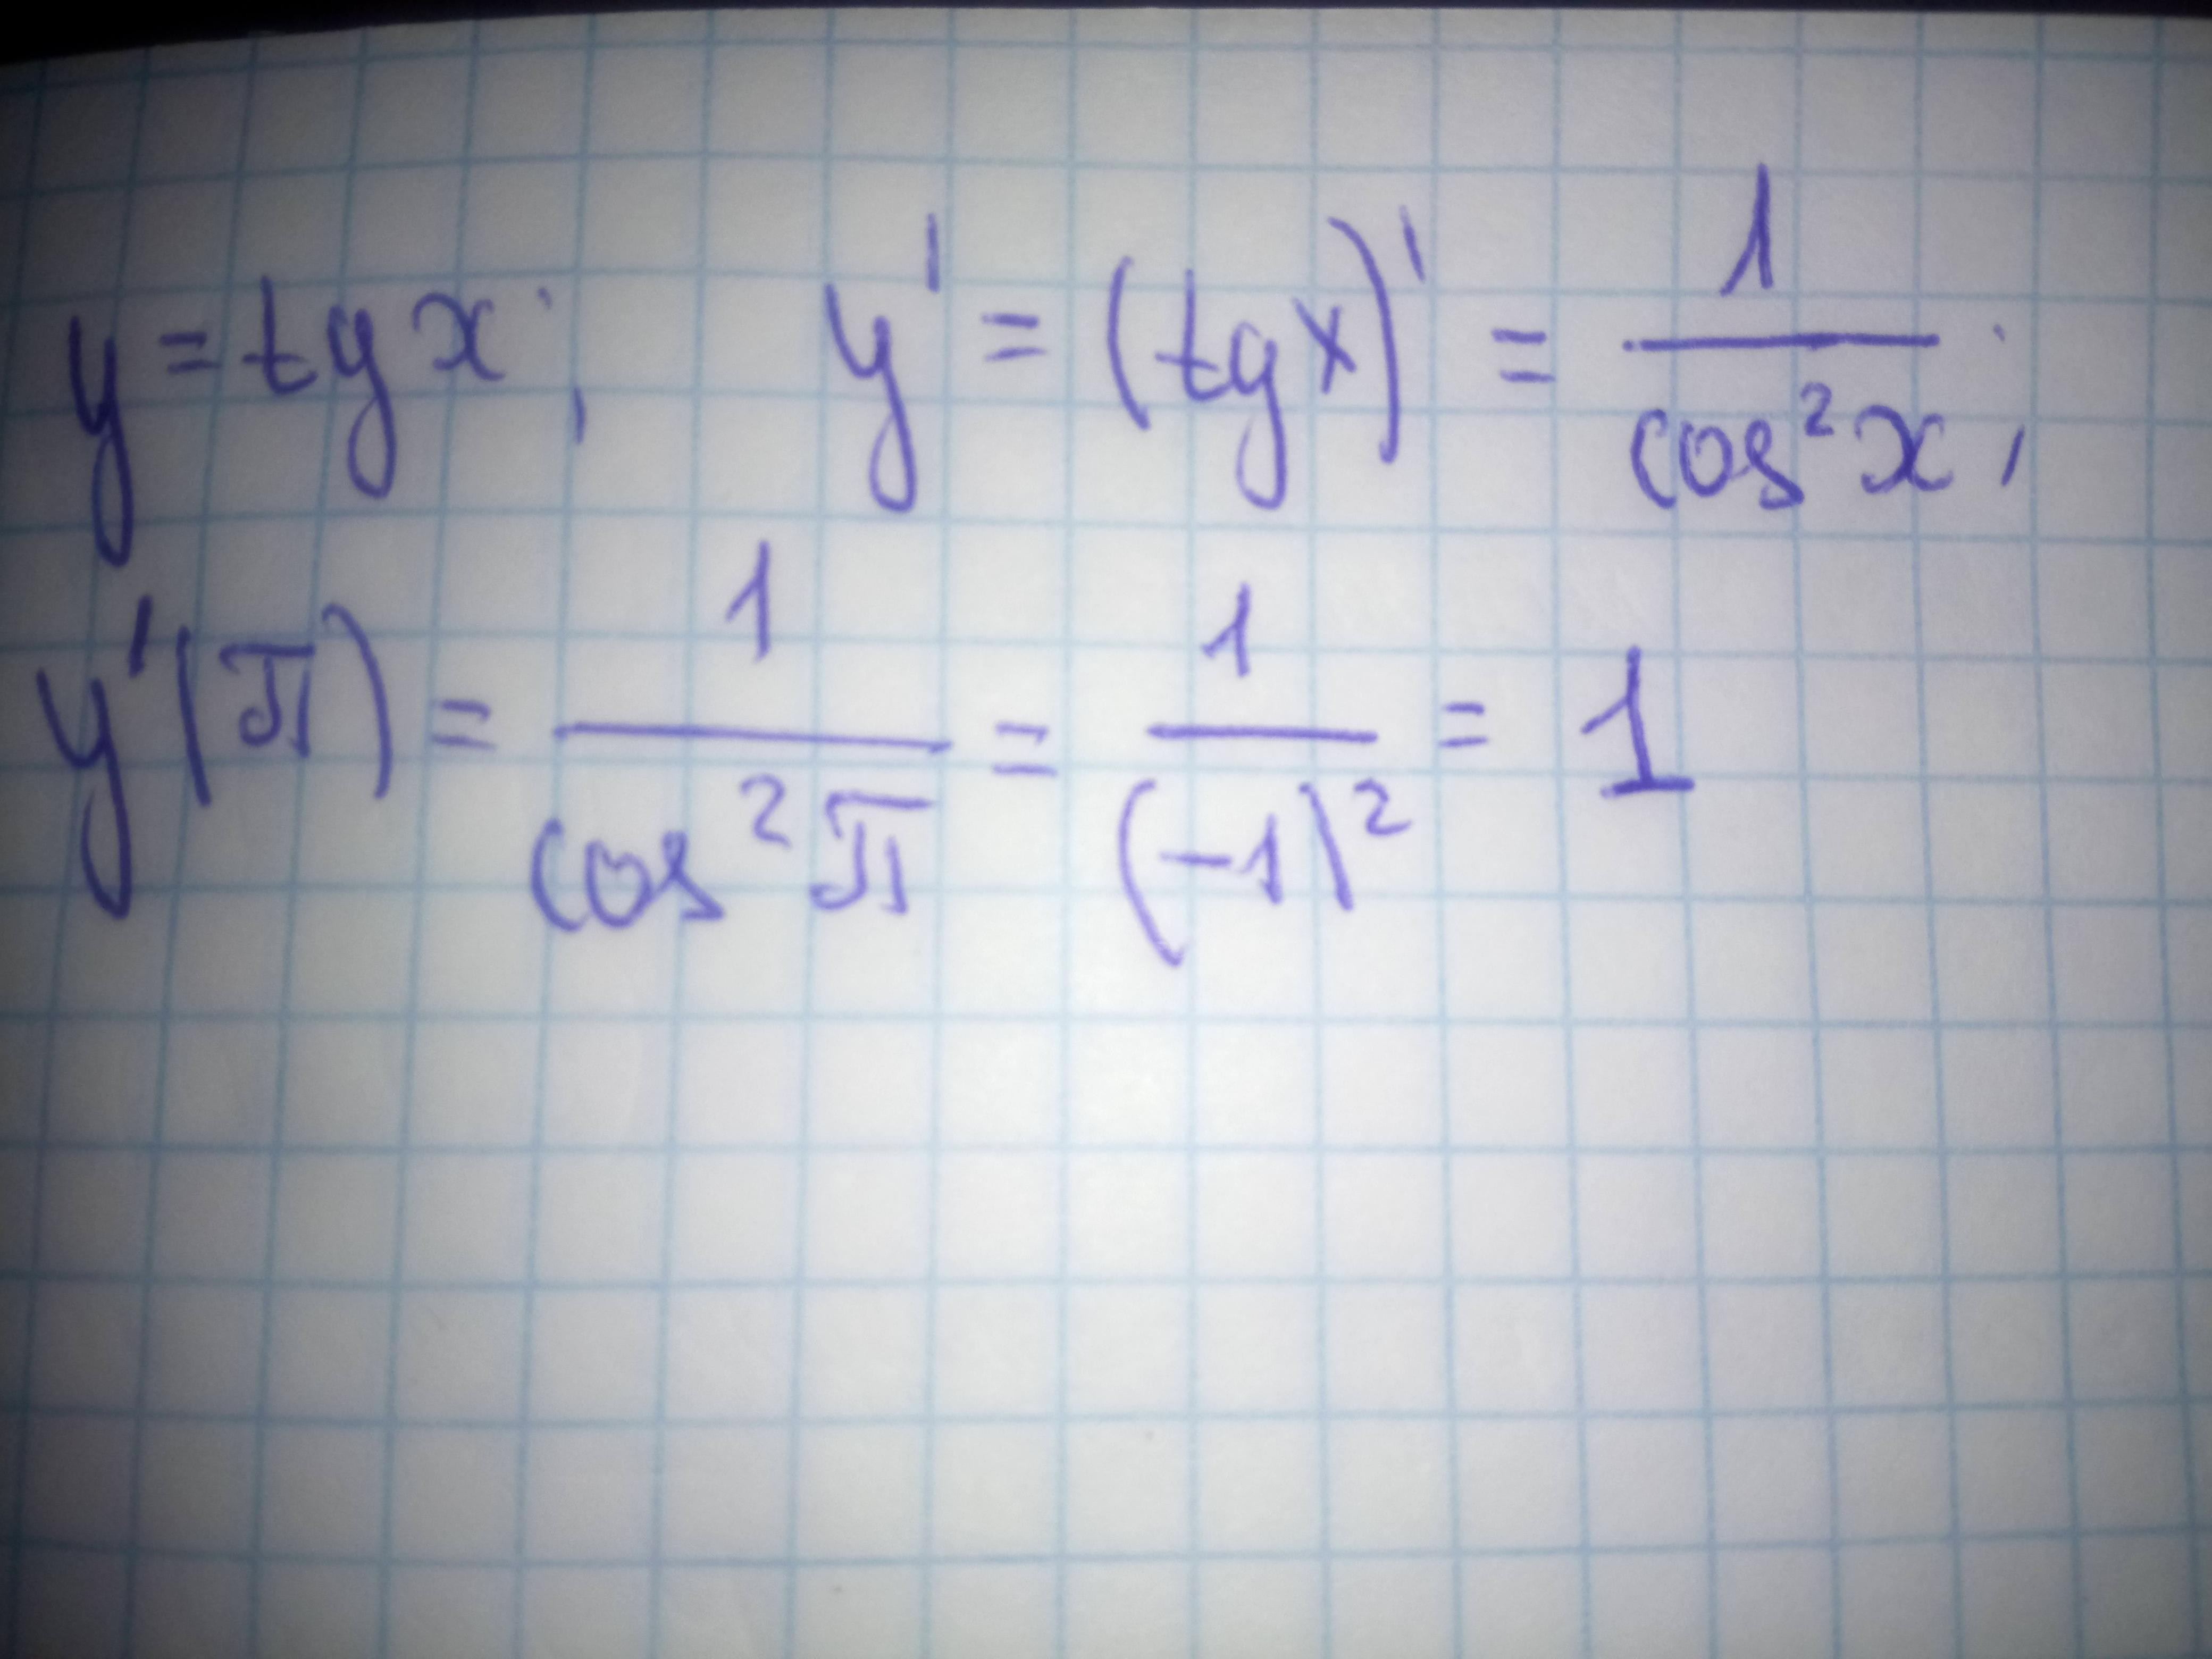 y = tg x; y' = (tg x)' = 1/cos²x;
y'(π) = 1/cos²π = 1/(-1)² = 1